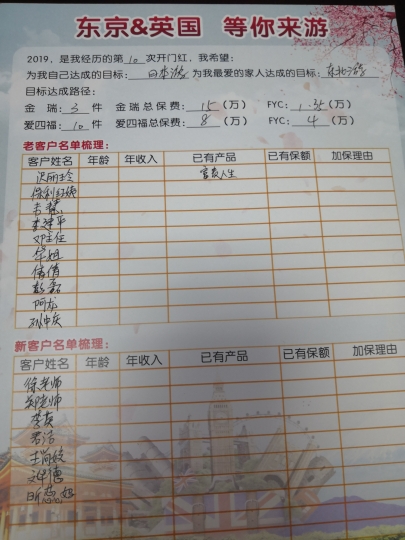 东京&英国 等你来游
2019，是我经历的第 10 次开门红，我希望：
为我自己达成的目标： 日本游 为我最爱的家人达成的目标： 东北游
目标达成路径：
金 瑞： 3 件 金瑞总保费： 15 （万） FYC： 1.35 （万）
爱四福： 10 件 爱四福总保费： 8 （万） FYC： 4 （万）
老客户名单梳理：
客户姓名 年龄 年收入 已有产品 已有保额 加保理由
洪丽玲 富贵人生
李建平
邓主任
徐姐
倩倩
彭磊
阿龙
孙中庆
新客户名单梳理：
客户姓名 年龄 年收入 已有产品 已有保额 加保理由
徐老师
郑老师
李庆
君洁
王尚姣
文华德